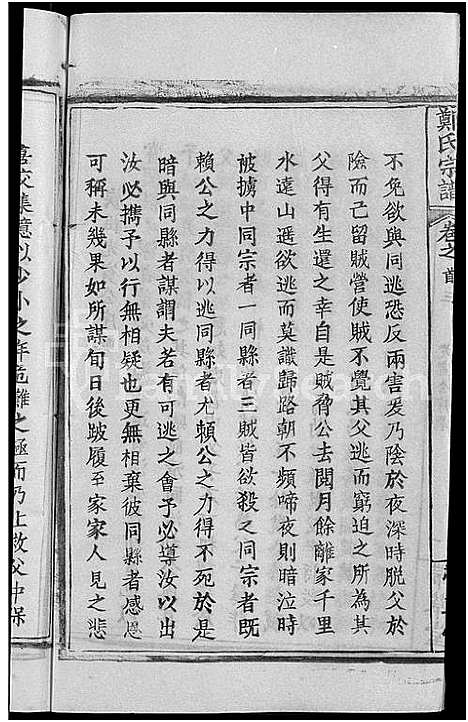 鄭氏宗譜
卷之首
不免欲與同逃恐反兩害爰乃陰於夜深時脱父於
險而己留賊營使賊不覺其父逃而窮迫之所為其
父得有生還之幸自是賊脅公去閱月餘離家千里
水遠山遥欲逃而莫識歸路朝不頻啼夜則暗泣時
被擄中同宗者一同縣者三賊皆欲殺之同宗者既
賴公之力得以逃同縣者尤賴公之力得不死於是
暗與同縣者謀謂夫若有可逃之會予必導汝以出
汝必携予以行無相疑也更無相棄彼同縣者感恩
可稱未幾果如所謀旬日後跛履至家家人見之悲
集憶以少小之年危難之極而乃上救父中保